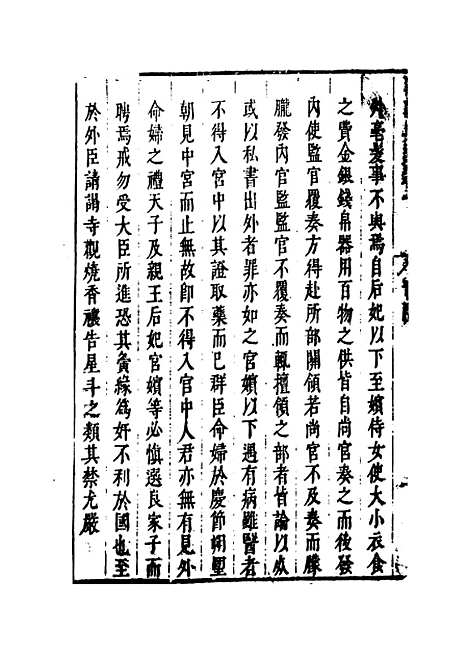 外毫髮事不與焉自后妃以下至嬪侍女使大小衣食
之費金銀錢帛器用百物之供皆自尚官奏之而後發
內使監官覆奏方得赴所部關領若尚官不及奏而朦
朧發內官監監官不覆奏而輒擅領之部者皆論以死
或以私書出外者罪亦如之官嬪以下遇有病雖醫者
不得入宮中以其證取藥而已群臣命婦於慶節朔望
朝見中宮而止無故即不得入宮中人君亦無有見外
命婦之禮天子及親王后妃宮嬪等必慎選良家子而
聘焉戒勿受大臣所進恐其夤緣為奸不利於國也至
於外臣請謁寺觀燒香禳告星斗之類其禁尤嚴